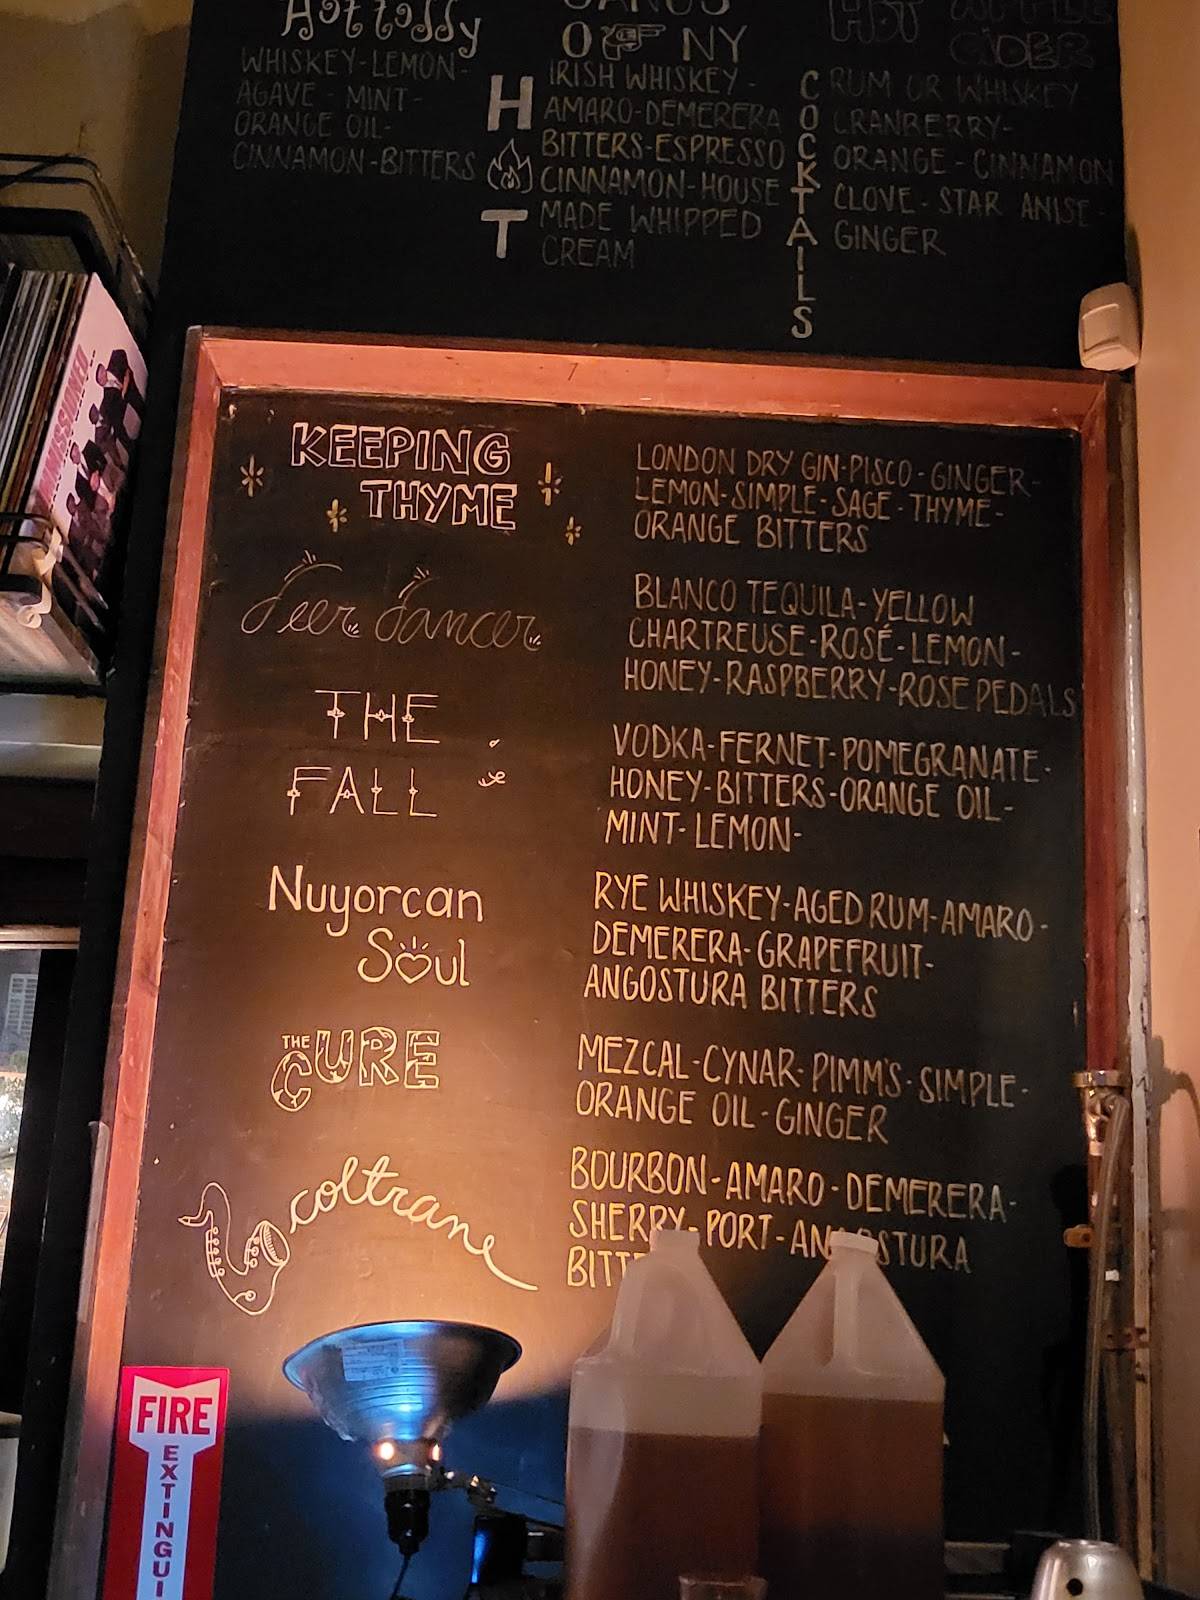 Hot toddy
WHISKEY-LEMON-
AGAVE - MINT-
ORANGE OIL-
CINNAMON-BITTERS
HOT
OF NY
IRISH WHISKEY -
AMARO-DEMERERA
BITTERS-ESPRESSO
CINNAMON-HOUSE
MADE WHIPPED
CREAM
COCKTAILS
HOT APPLE
CIDER
RUM OR WHISKEY
CRANBERRY-
ORANGE - CINNAMON
CLOVE - STAR ANISE -
GINGER
KEEPING
THYME
LONDON DRY GIN-PISCO-GINGER-
LEMON-SIMPLE-SAGE-THYME-
ORANGE BITTERS
Deer Dancer
BLANCO TEQUILA-YELLOW
CHARTREUSE-ROSÉ-LEMON-
HONEY-RASPBERRY-ROSE PEDALS
THE
FALL
VODKA-FERNET-POMEGRANATE-
HONEY-BITTERS-ORANGE OIL-
MINT-LEMON-
Nuyorcan
Soul
RYE WHISKEY-AGED RUM-AMARO-
DEMERERA-GRAPEFRUIT-
ANGOSTURA BITTERS
THE
CURE
MEZCAL-CYNAR-PIMM'S-SIMPLE-
ORANGE OIL-GINGER
coltrane
BOURBON-AMARO-DEMERERA-
SHERRY-PORT-ANGOSTURA
BITT
FIRE
EXTINGUI